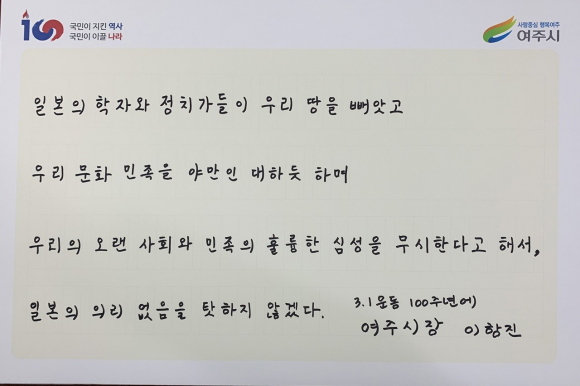 100
국민이 지킨 역사
국민이 이끌 나라
사람중심 행복여주
여주시
일본의 학자와 정치가들이 우리 땅을 빼앗고
우리 문화 민족을 야만인 대하듯 하며
우리의 오랜 사회와 민족의 훌륭한 심성을 무시한다고 해서,
일본의 의리 없음을 탓하지 않겠다.
3.1운동 100주년에
여주시장 이항진